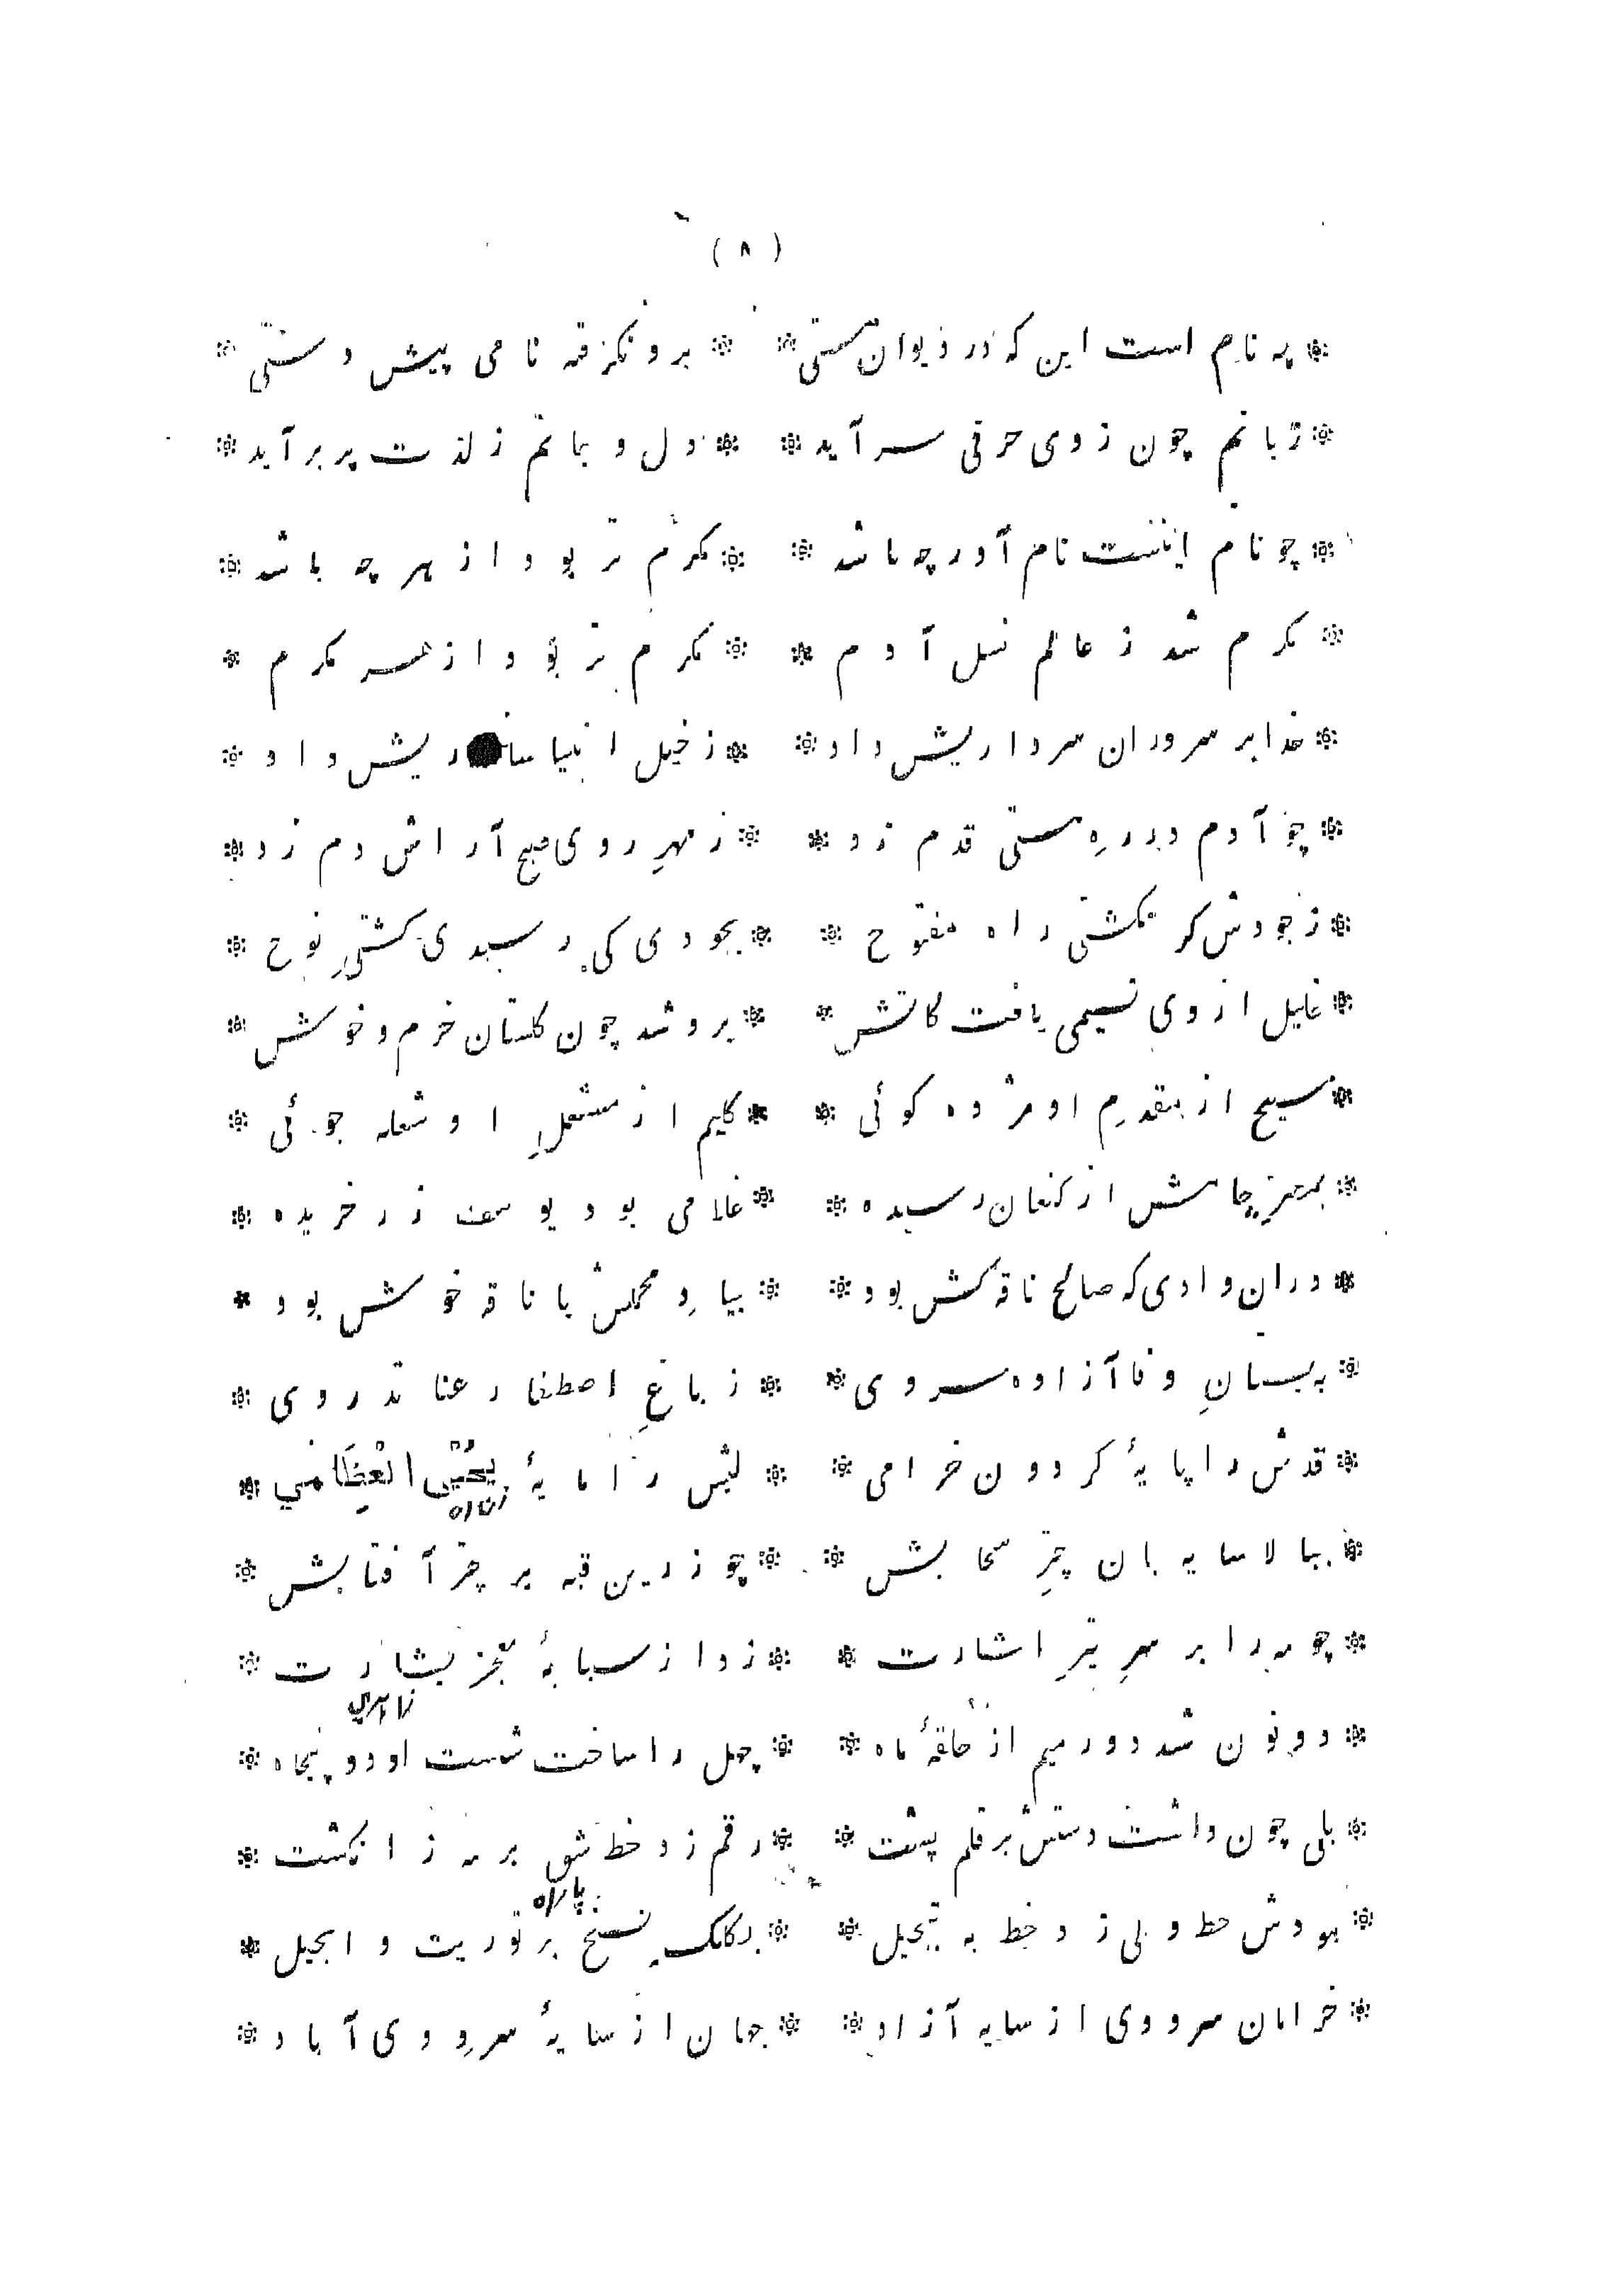 ( ۸ )
* چه نام است این که در دیوان هستی * * برو نگرفته نامی پیش دستی *
* زبانم چون ز وی حرفی سر آید * * دل و جانم ز لذت پر برآید *
* چو نام اینست نام آور چه باشد * * مکرم تر بود از هر چه باشد *
* مکرم شد ز عالم نسل آدم * * مکرم تر بود از هر مکرم *
* خدا بر سروران سرداریش داد * * ز خیل انبیا سالاریش داد *
* چو آدم در ره هستی قدم زد * * ز مهرِ روی صبح آراش دم زد *
* ز جودش گر نگشتی راه مفتوح * * بجودی کی رسیدی کشتیِ نوح *
* خلیل از وی نسیمی یافت کاتش * * برو شد چون گلستان خرم و خوش *
* مسیح از مقدمِ او مژده گوئی * * کلیم از مشعلِ او شعله جوئی *
* بمصرِ جاهش از کنعان رسیده * * غلامی بود یوسف زر خریده *
* دران وادی که صالح ناقه کش بود * * بیادِ محملش با ناقه خوش بود *
* به بستانِ وفا آزاده سروی * * ز باغِ اصطفا رعنا تدروی *
* قدش را پایهٔ گردون خرامی * * لبش را مایهٔ یُحْیِی الْعِظَامی *
زنده
* ببالا سایه بان چترِ سحابش * * چو زرین قبه بر چتر آفتابش *
* چو مه را بر سرِ تیرِ اشارت * * زد از سبابهٔ معجز بشارت *
* دو نون شد دور میم از حلقهٔ ماه * * چهل را ساخت شست او دو پنجاه *
* بلی چون داشت دستش بر قلم پشت * * رقم زد خط شق بر مه ز انگشت *
پاره
* نبودش خط ولی زد خط به تبجیل * * بکلک نسخ بر توریت و انجیل *
* خرامان سرو وی از سایه آزاد * * جهان از سایهٔ سرو وی آباد *